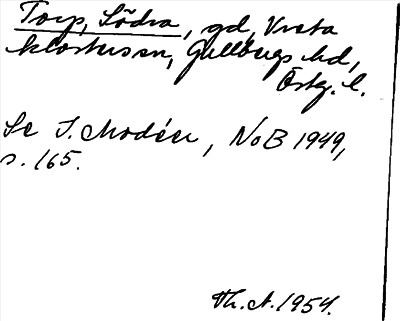 Torp, Södra, gd, Vreta
klosters sn, Gullbergs hd,
Östg. l.
Se I. Modéer, NoB 1949,
s. 165.
Th. A. 1954.